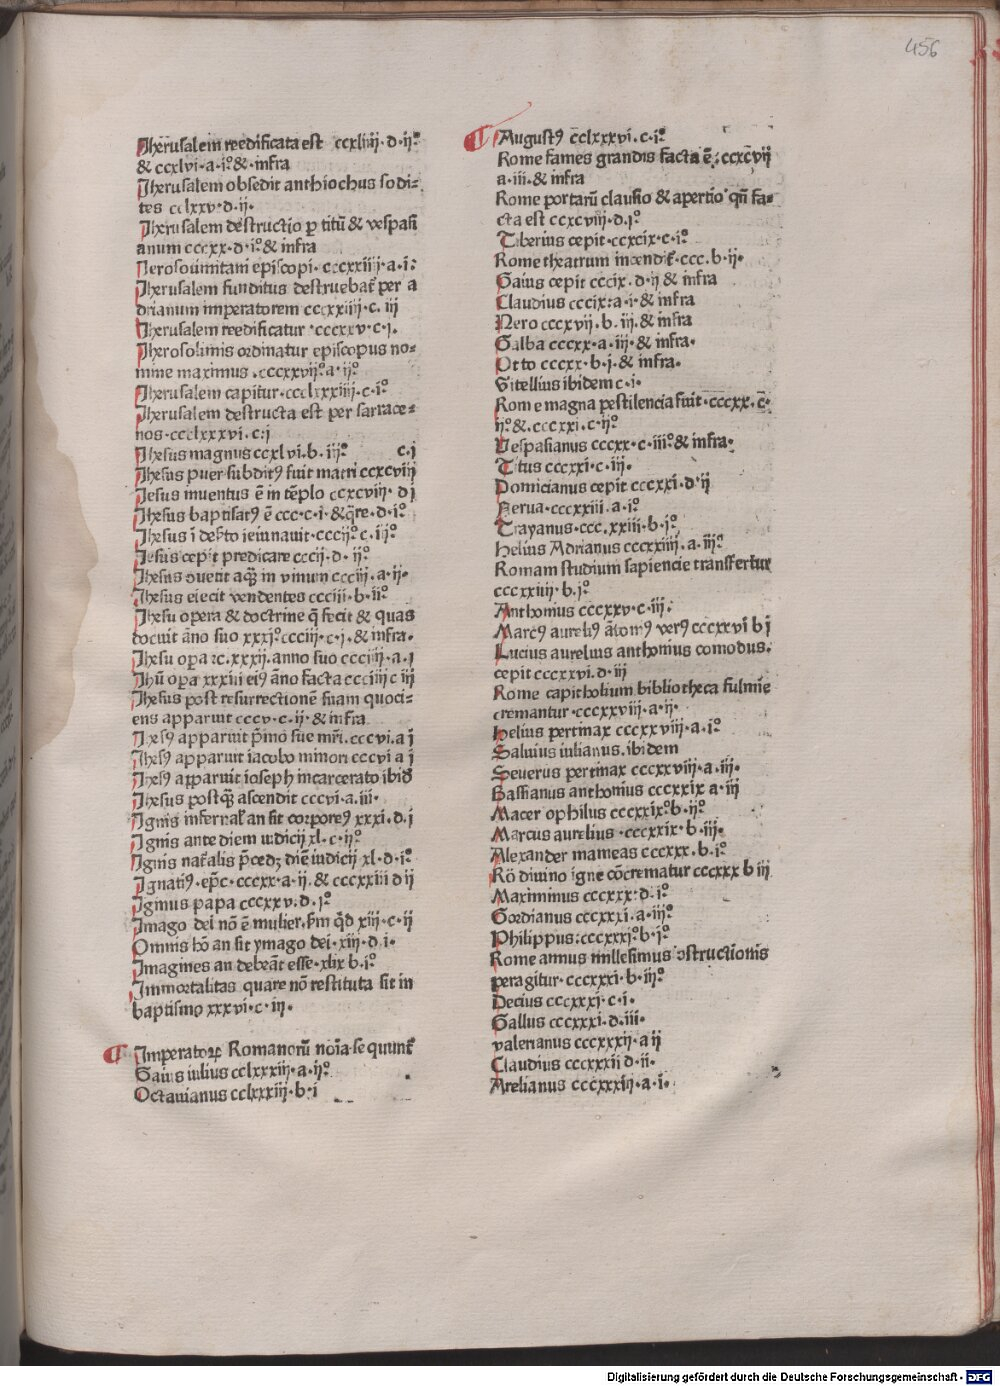 456
Jherusalem reedificata est ccxliiij·d·ijº
& ccxlvi·a·iº·&·infra
Jherusalem obsedit anthiochus sodi-
tes cclxxv·d·ij·
Jherusalem destructio p titū & vespasi
anum cccxx·d·iº & infra
Jerosolimitani episcopi·cccxxiiij·a·iº
Jherusalem funditus destruebat᷑ per a
drianum imperatorem cccxxiiij·c·iij
Jherusalem reedificatur·cccxxv·c·j·
Jherosolimis ordinatur episcopus no-
mine maximus·cccxxvijº·a·ijº
Jherusalem capitur·ccclxxxiiij·c·iº
Jherusalem destructa est per sarrace-
nos·ccclxxxvi·c·j
Jhesus magnus ccxlvi·b·iijº c·j
Jhesus puer subditꝰ fuit matri ccxcviij
Jesus inuentus ē in tēplo ccxcviij·d j
Jhesus baptisatꝰ ē ccc·c·i·&q̄re·d·iº
Jhesus ī deẜto ieiunauit·cccijº c·ijº
Jesus cepit predicare cccij·d·ijº
Jhesus ꝯuertit aquā in vinum ccciij·a·ij·
Jhesus eiecit vendentes ccciij·b·ijº
Jhesu opera & doctrine q̄ fecit & quas
docuit āno suo xxxjº ccciij·c·j·& infra·
Jhesu opera ⁊c·xxxij·anno suo ccciiij·a·j
Jhū opera xxxiii eiꝰ āno facta ccciiij c iij
Jhesus post resurrectionē suam quoci-
ens apparuit cccv·c·ij·& infra
Jhesꝰ apparuit p̄mo sue mr̄i·cccvi·a j
Jhesꝰ apparuit iacobo minori cccvi a j
Jhesꝰ apparuit ioseph incarcerato ibid̄
Jhesus postq̄ ascendit cccvi·a·iii·
Jgnis infernal᷑ an sit corporeꝰ xxxi·d·j
Jgnis ante diem iudicij xl·c·ijº
Jgnis nat᷑alis p̄cedꝫ diē iudicij xl·d·iº
Jgnatiꝰ·ep̄c·cccxx·a·ij·& cccxxiii d ij
Jginus papa cccxxv·d·jº
Jmago dei nō ē mulier·ẜm q̄d xiij·c·ij
Omnis hō an sit ymago dei·xiij·d·i·
Jmagines an debeāt esse·xlix b·iº
Jmmortalitas quare nō restituta sit in
baptismo xxxvi·c·iij·
Jmperatorꝝ Romanorū noīa sequunt᷑
Gaius iulius cclxxxiij·a·ijº
Octauianus cclxxxiij·b·i
Augustꝰ cclxxxvi·c·iº
Rome fames grandis facta ē·ccxcvij
a·iii·& infra
Rome portarū clausio & apertio qn̄ fa-
cta est ccxcviij·d·jº
Tiberius cepit·ccxcix·c·iº
Rome theatrum incendit᷑·ccc·b·ij·
Gaius cepit cccix·d·ij & infra
Claudius cccix·a·i·& infra
Nero cccxvij·b·iij·& infra
Galba cccxx·a·iij·& infra·
Otto cccxx·b·j·& infra·
Vitellius ibidem c·i·
Rome magna pestilencia fuit·cccxx·c·
ijº·&·cccxxi·c·ijº
Vespasianus cccxx·c·iijº & infra·
Titus cccxxi·c·iij·
Domicianus cepit cccxxi·d·ij
Nerua·cccxxiii·a·iº
Trayanus·ccc·xxiij·b·iº
Helius Adrianus cccxxiiij·a·iijº
Romam studium sapiencie transfertur
cccxxiiij·b·jº
Anthonius cccxxv·c·iij·
Marcꝰ aureliꝰ ātoniꝰ verꝰ cccxxvi b j
Lucius aurelius anthonius comodus·
cepit cccxxvi·d·iij
Rome capitholium bibliotheca fulmīe
cremantur·cccxxviii·a·ij·
Helius pertinax cccxxviij·a·iº
Saluius iulianus·ibidem
Seuerus pertinax cccxxviij·a·iij·
Bassianus anthonius cccxxix a·iij
Macer ophilus cccxxixº b·ijº
Marcus aurelius·cccxxix·b·iij·
Alexander mameas cccxxx·b·iº
Rō diuino igne cōcrematur cccxxx b iij
Maximinus cccxxx·d·iº
Gordianus cccxxxi·a·iijº
Philippus:cccxxxiº b·iº
Rome annus millesimus ꝯstructiōnis
peragitur·cccxxxi·b·iijº
Decius cccxxxj·c·i·
Gallus cccxxxi·d·iii·
valerianus cccxxxij·a ij
Claudius cccxxxij d·ij·
Arelianus cccxxxiij·a·i·
Digitalisierung gefördert durch die Deutsche Forschungsgemeinschaft - DFG